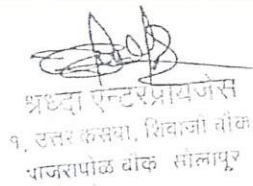 श्रध्दा एन्टरप्रायजेस
१, उत्तर कसबा, शिवाजी चौक
पांजरापोळ चौक सोलापूर